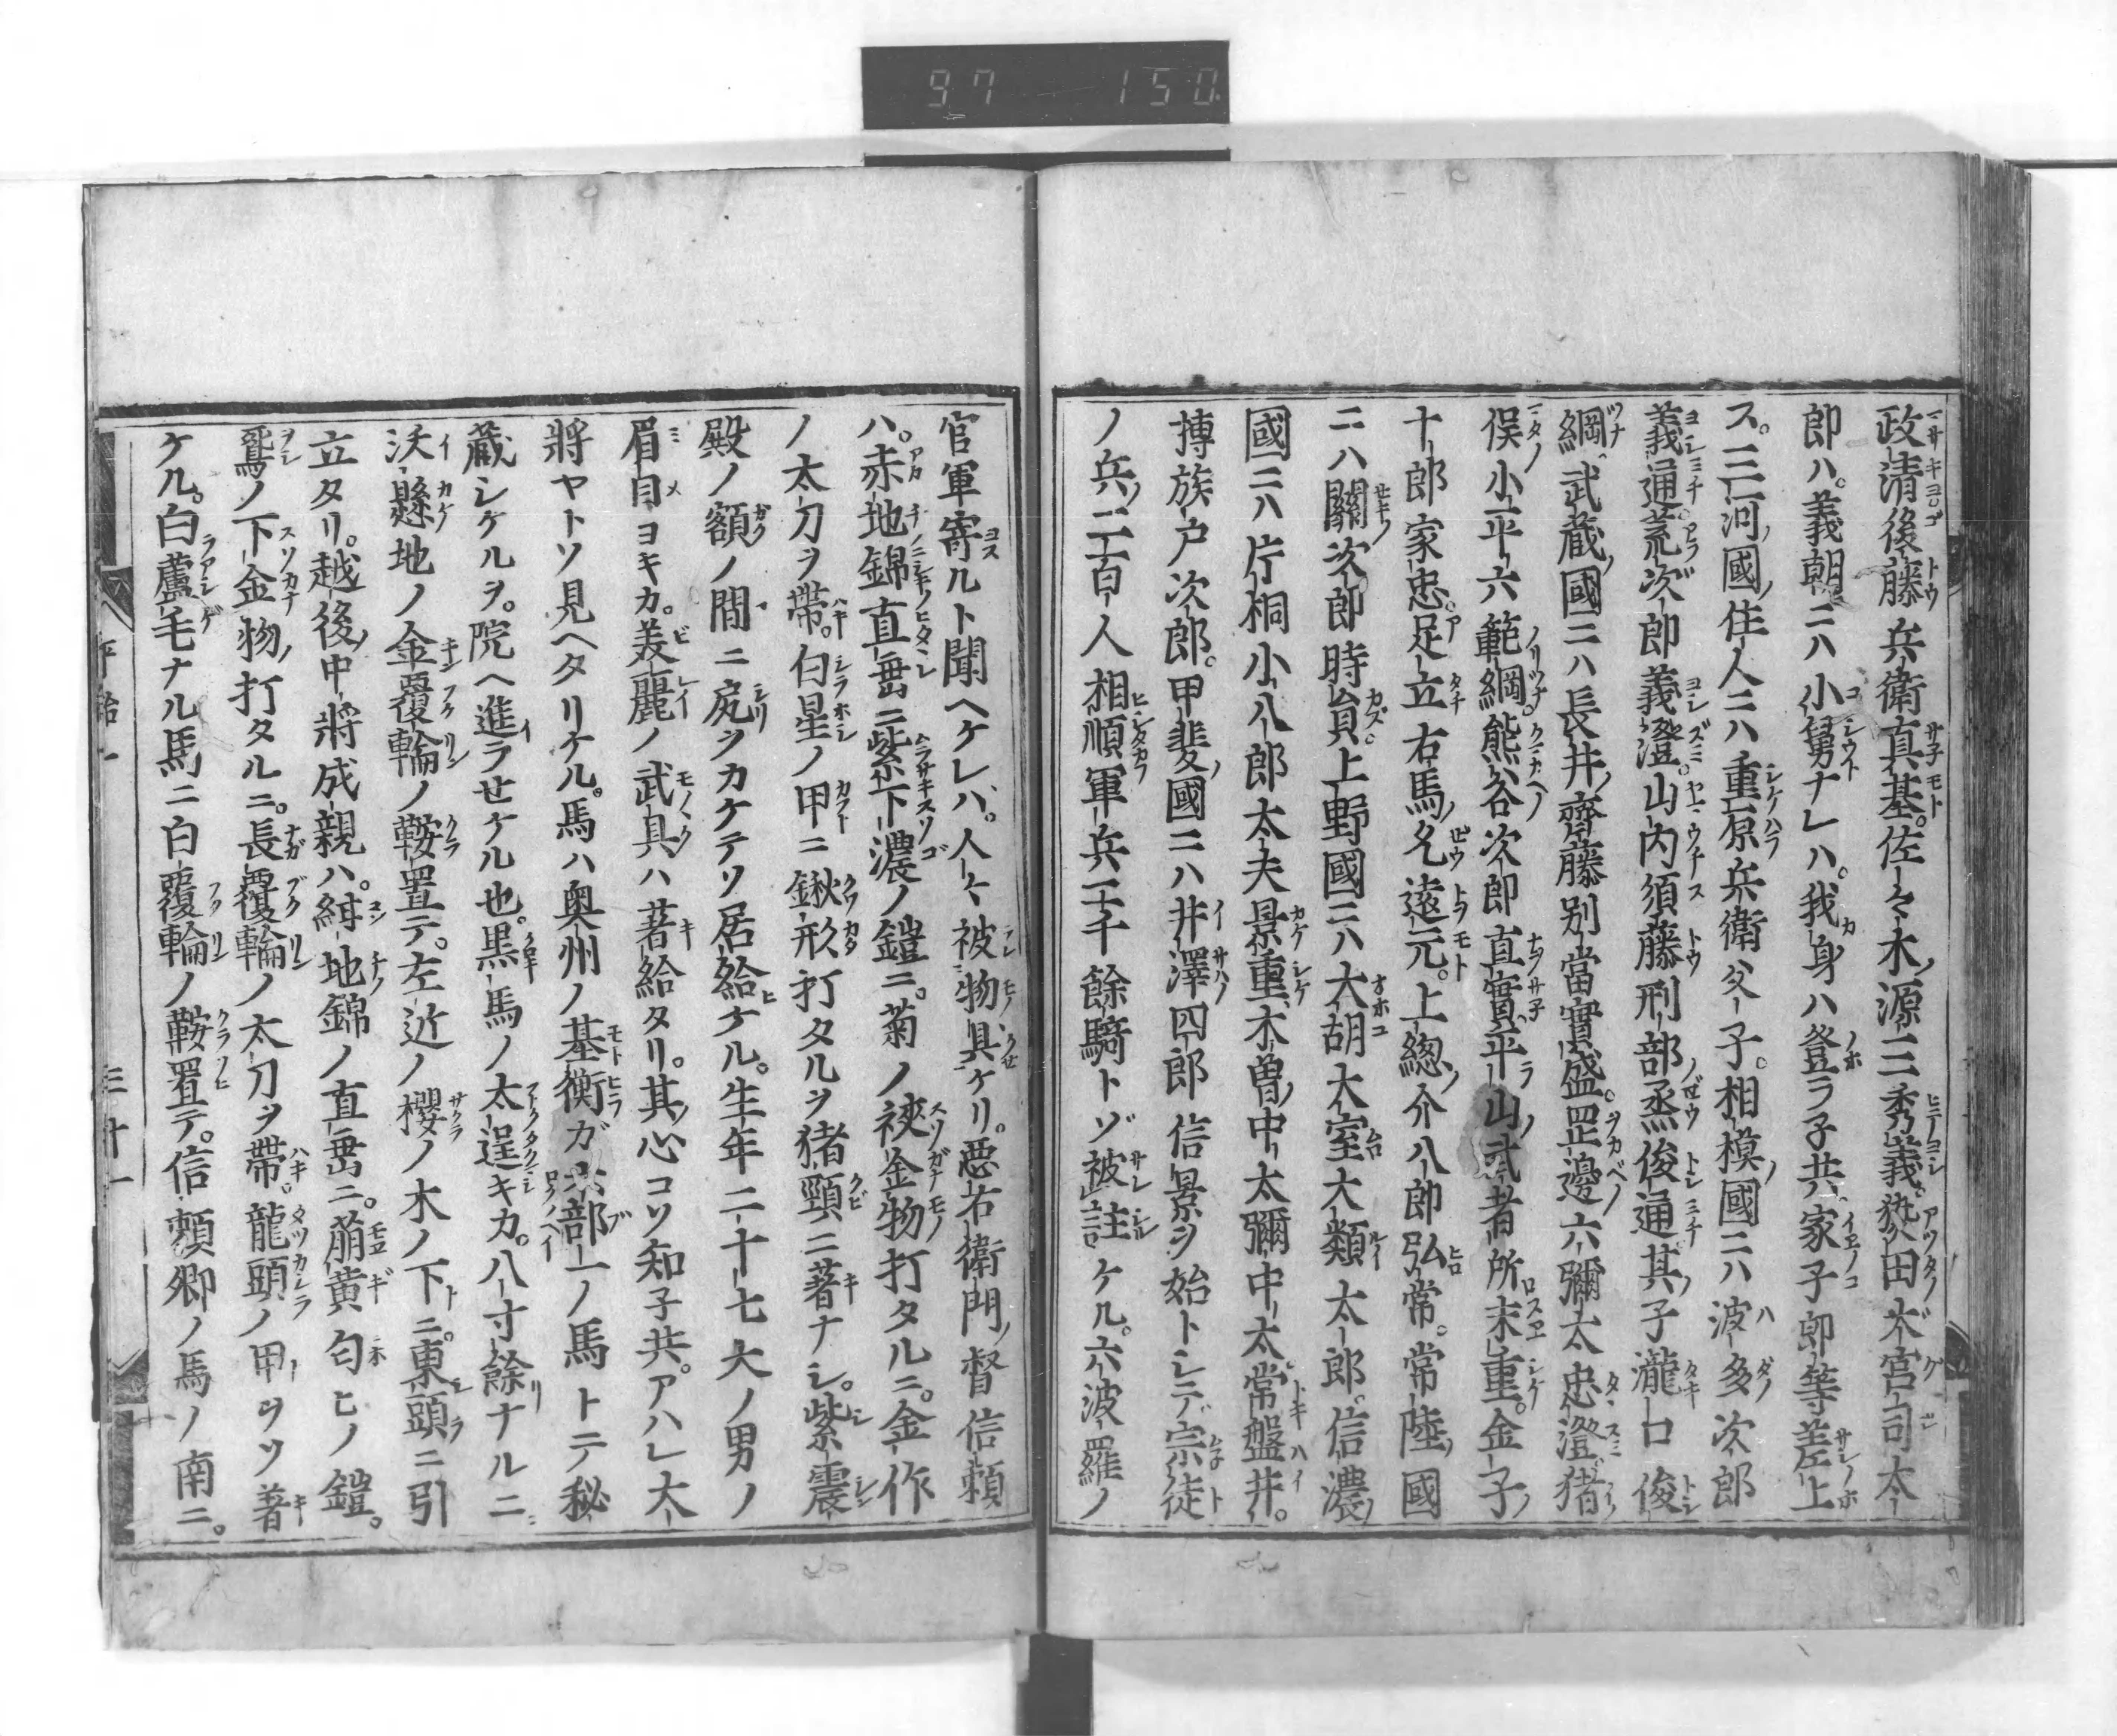 97 150
政清後藤兵衛真基。佐々木ノ源三秀義。𤍠田太宮司太
郎ハ。義朝ニハ小舅ナレハ。我身ハ登ラ子共。家子郎等差上
ス。三河國ノ住人ニハ重原兵衛父子。相模國ニハ波多次郎
義通荒次郎義澄。山内須藤刑部丞俊通其子瀧口俊
綱。武蔵國ニハ長井齋藤別當實盛。罡邊六彌太忠澄猪
俣小平六範綱。熊谷次郎直實平山武者所末重。金子
十郎家忠。足立右馬允遠元。上總介八郎弘常。常陸國
ニハ關次郎時員。上野國ニハ大胡大室大類太郎。信濃
國ニハ片桐小八郎太夫景重。木曽中太彌中太。常盤井。
摶族戸次郎。甲斐國ニハ井澤四郎信景ヲ始トシテ宗徒
ノ兵二百人相順軍兵二千餘騎トゾ被註ケル。六波羅ノ
官軍寄ルト聞ヘケレハ。人々被物具ケリ。悪右衛門督信頼
ハ。赤地錦直垂ニ紫下濃ノ鎧ニ。菊ノ裾金物打タルニ。金作
ノ太刀ヲ帶。白星ノ甲ニ鍬形打タルヲ猪頸ニ著ナシ。紫震
殿ノ額ノ間ニ尻ヲカケテソ居給ケル。生年二十七大ノ男ノ
眉目ヨキカ。美麗ノ武具ハ著給タリ。其心コソ知子共。アハレ大
將ヤトソ見ヘタリケル。馬ハ奥州ノ基衡ガ六部一ノ馬トテ秘
蔵シケルヲ。院ヘ進ラせケル也。黒馬ノ太逞キカ。八寸餘ナルニ
沃懸地ノ金覆輪ノ鞍置テ。左近ノ櫻ノ木ノ下ニ。東頭ニ引
立タリ。越後中將成親ハ。紺地錦ノ直垂ニ。萠黄匂ヒノ鎧。
鴛ノ下金物打タルニ。長覆輪ノ太刀ヲ帶。龍頭ノ甲ヲソ著
ケル。白蘆毛ナル馬ニ白覆輪ノ鞍置テ。信頼卿ノ馬ノ南ニ。
平治一 三十一